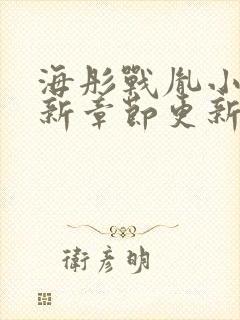 海彤戰胤小
新章節更新
衛彥明